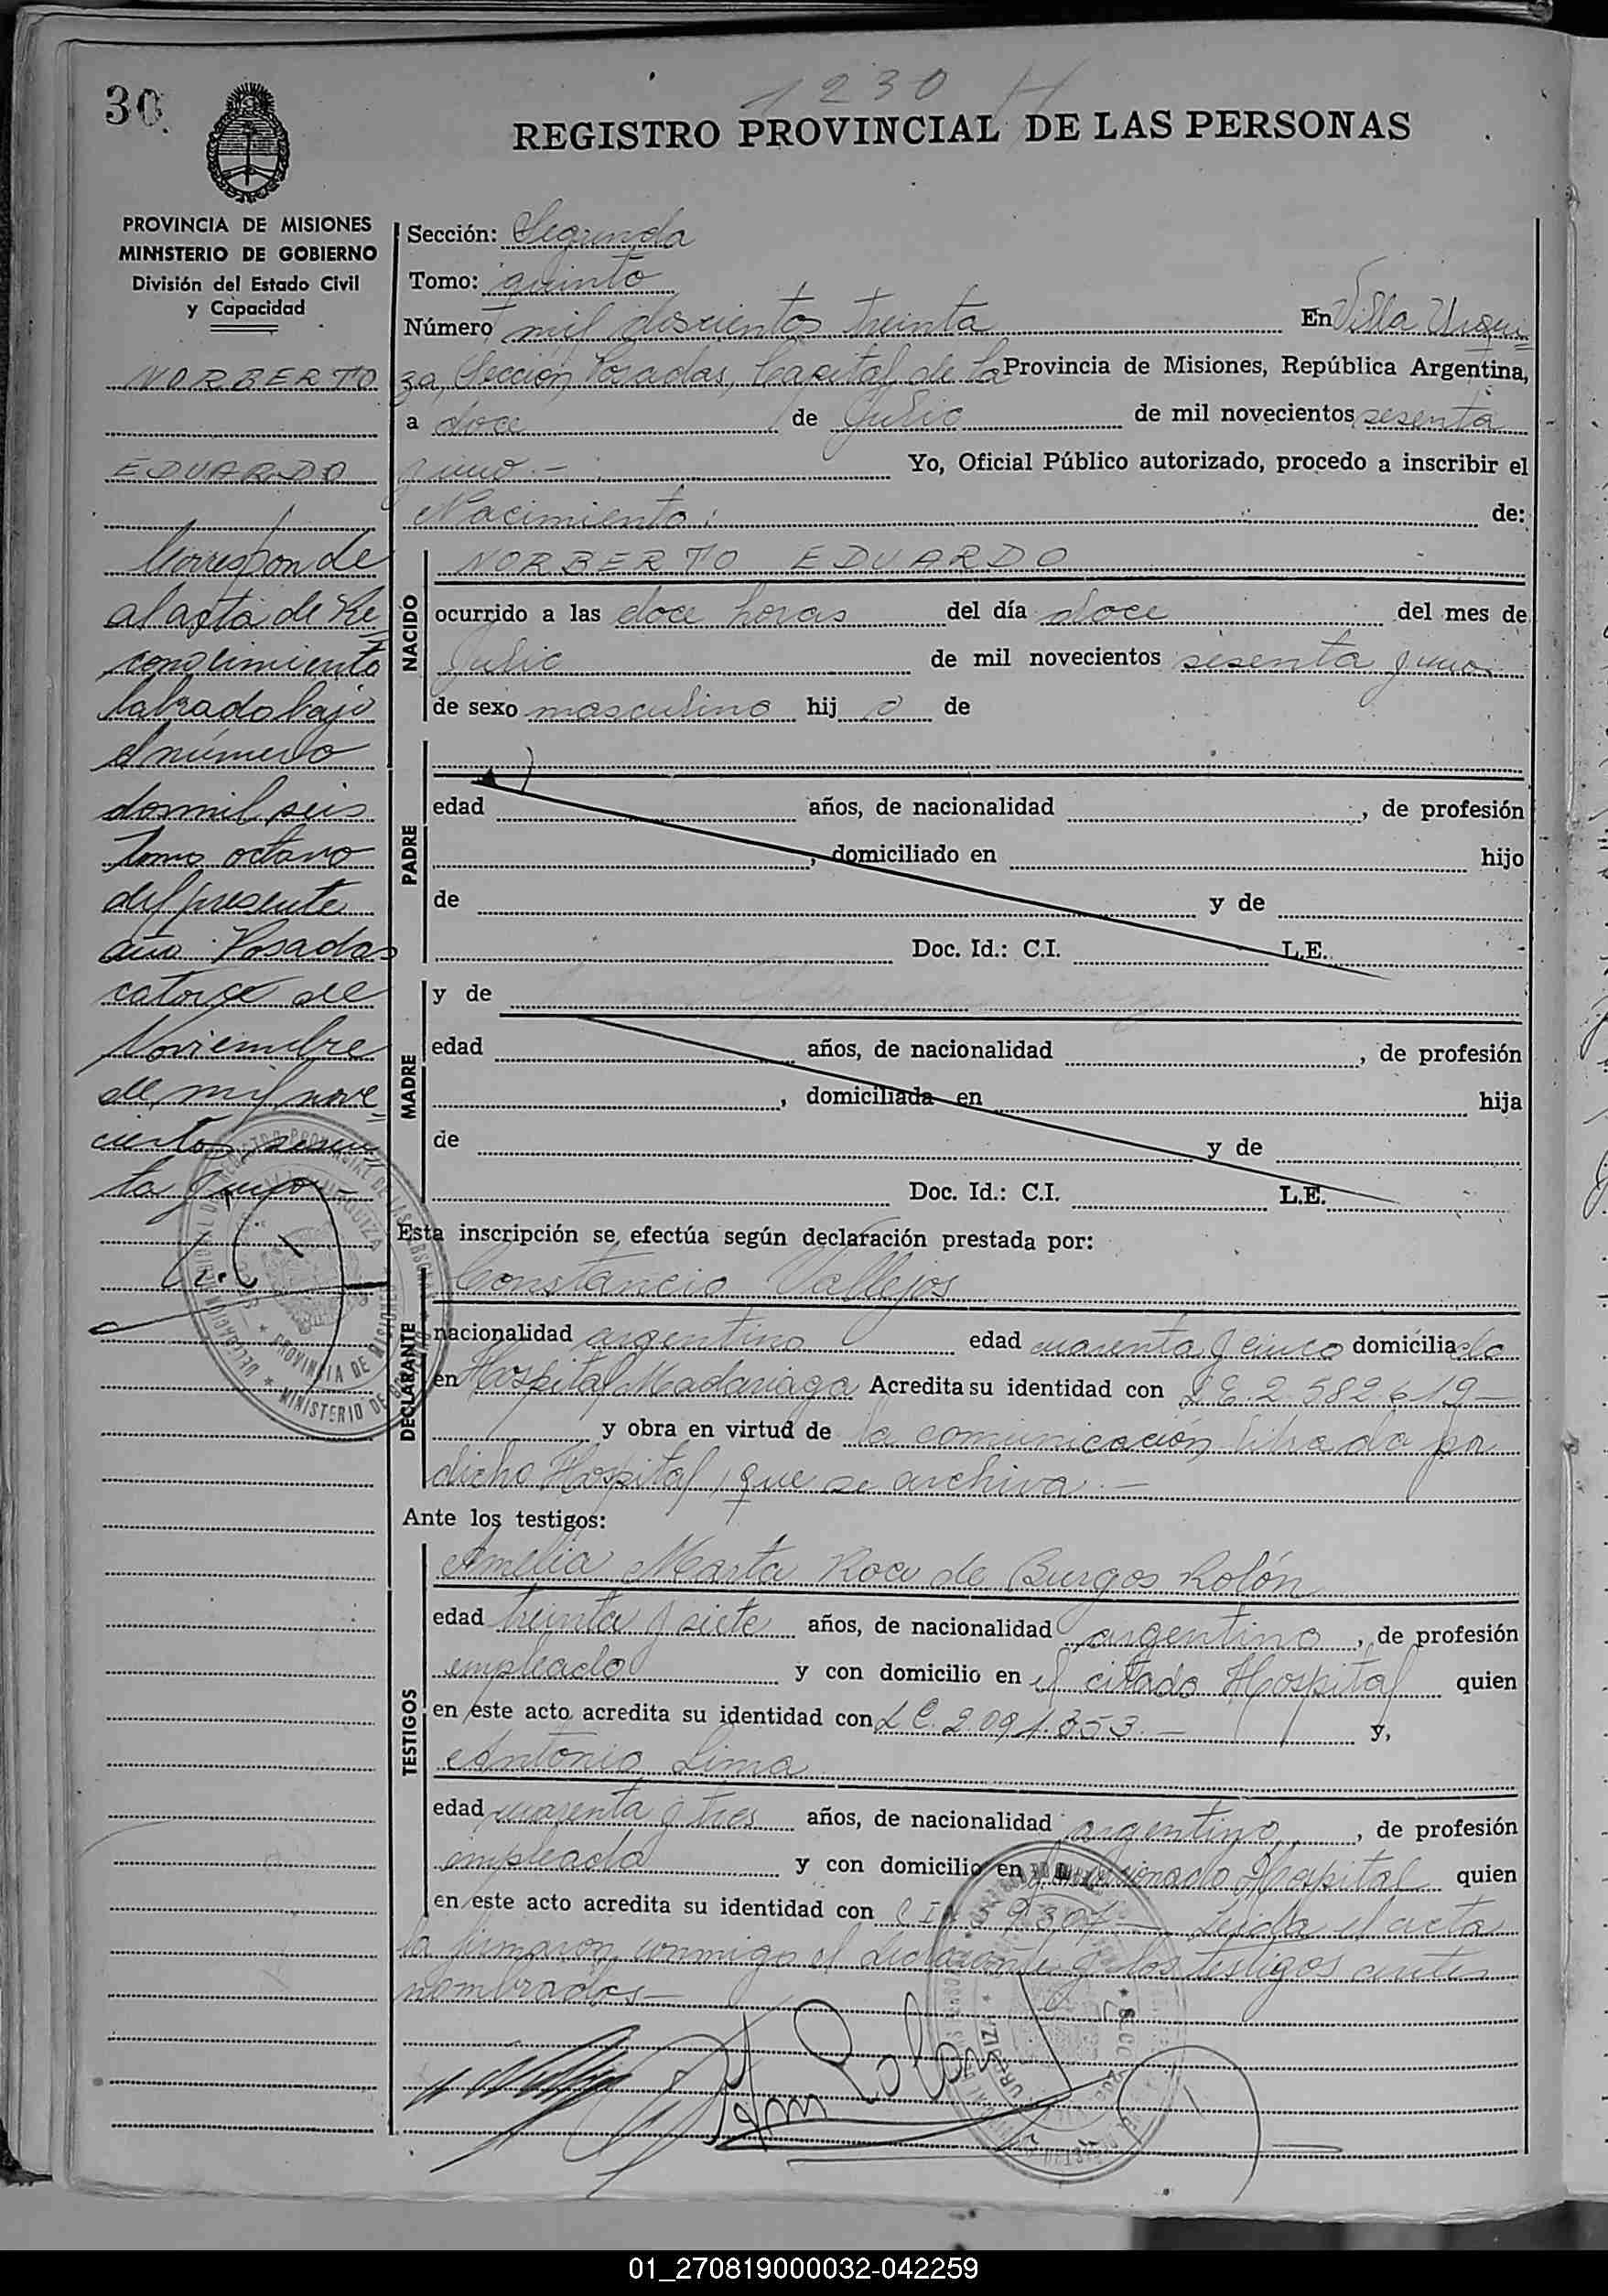 1230 H
30.
REGISTRO PROVINCIAL DE LAS PERSONAS
PROVINCIA DE MISIONES
MINISTERIO DE GOBIERNO
División del Estado Civil
y Capacidad
NORBERTO
EDUARDO
Corresponde
al acta de Re=
conocimiento
labrado bajo
el número
dosmil seis
tomo octavo
del presente
año. Posadas
catorce de
Noviembre
de mil nove=
cientos sesen
ta y uno.-
Sección: Segunda
Tomo: quinto
Número mil doscientos treinta En Villa Urqui=
za, Sección Posadas, Capital de la Provincia de Misiones, República Argentina,
a doce de Julio de mil novecientos sesenta
y uno.- Yo, Oficial Público autorizado, procedo a inscribir el
Nacimiento: de:
NACIDO
NORBERTO EDUARDO
ocurrido a las doce horas del día doce del mes de
Julio de mil novecientos sesenta y uno
de sexo masculino hijo de
PADRE
edad años, de nacionalidad , de profesión
, domiciliado en hijo
de y de
Doc. Id.: C.I. L.E.
MADRE
y de
edad años, de nacionalidad , de profesión
, domiciliada en hija
de y de
Doc. Id.: C.I. L.E.
Esta inscripción se efectúa según declaración prestada por:
DECLARANTE
Constancio Vallejos
nacionalidad argentino edad cuarenta y cinco domiciliado
en Hospital Madariaga Acredita su identidad con L E. 2.582.619-
y obra en virtud de la comunicación librada por
dicho Hospital, que se archiva.-
Ante los testigos:
TESTIGOS
Amelia Marta Roca de Burgos Rolón
edad treinta y siete años, de nacionalidad argentina, de profesión
empleada y con domicilio en el citado Hospital quien
en este acto acredita su identidad con L C. 2.091.353.- y,
Antonio Lima
edad cuarenta y tres años, de nacionalidad argentino, de profesión
empleado y con domicilio en Hospital quien
en este acto acredita su identidad con C I. Leida el acta
la firmaron conmigo el declarante y los testigos antes
nombrados-
01_270819000032-042259